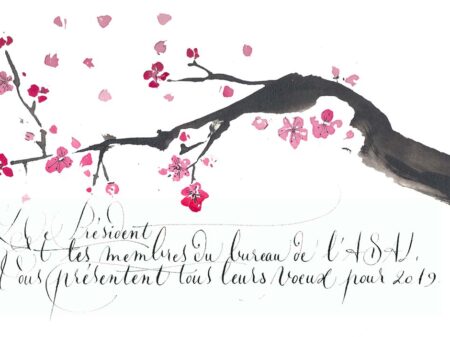 Le Président
et les membres du bureau de l'ASAV,
Vous présentent tous leurs voeux pour 2019